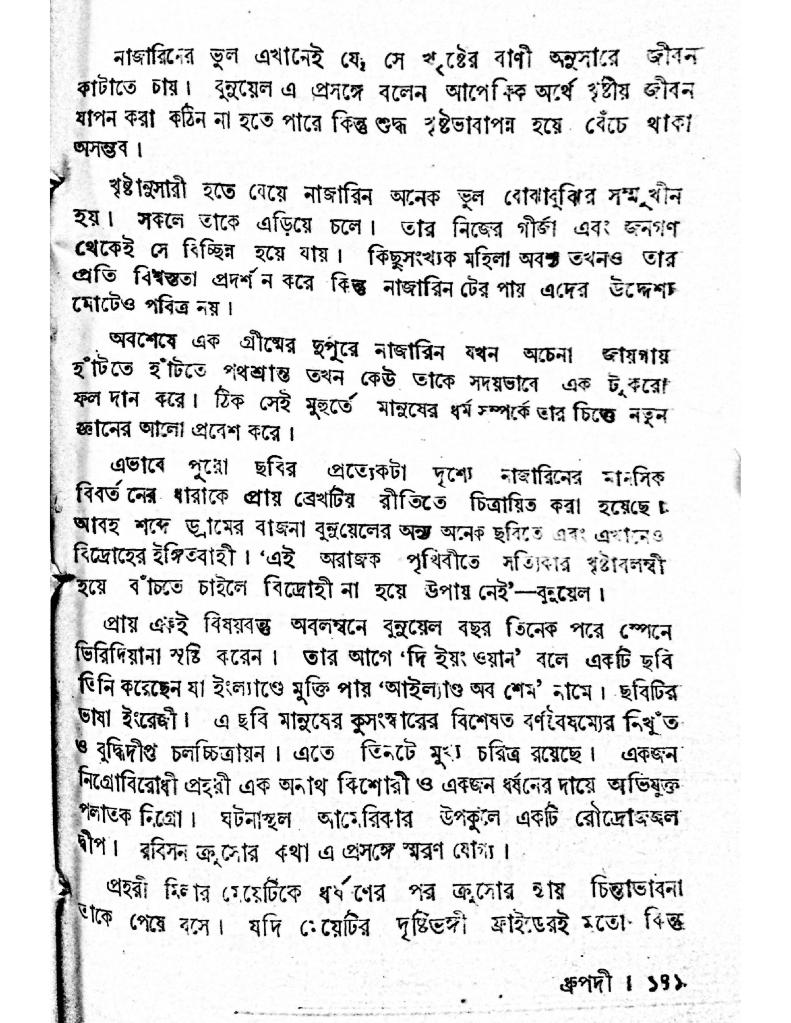 নাজারিনের ভুল এখানেই যে, সে খৃষ্টের বাণী অনুসারে জীবন
কাটাতে চায়। বুনুয়েল এ প্রসঙ্গে বলেন আপেক্ষিক অর্থে খৃষ্টীয় জীবন
যাপন করা কঠিন না হতে পারে কিন্তু শুদ্ধ খৃষ্টভাবাপন্ন হয়ে বেঁচে থাকা
অসম্ভব।
খৃষ্টানুসারী হতে যেয়ে নাজারিন অনেক ভুল বোঝাবুঝির সম্মুখীন
হয়। সকলে তাকে এড়িয়ে চলে। তার নিজের গীর্জা এবং জনগণ
থেকেই সে বিচ্ছিন্ন হয়ে যায়। কিছুসংখ্যক মহিলা অবশ্য তখনও তার
প্রতি বিশ্বস্ততা প্রদর্শন করে কিন্তু নাজারিন টের পায় এদের উদ্দেশ্য
মোটেও পবিত্র নয়।
অবশেষে এক গ্রীষ্মের দুপুরে নাজারিন যখন অচেনা জায়গায়
হাঁটতে হাঁটতে পথশ্রান্ত তখন কেউ তাকে সদয়ভাবে এক টুকরো
ফল দান করে। ঠিক সেই মুহুর্তে মানুষের ধর্ম সম্পর্কে তার চিত্তে নতুন
জ্ঞানের আলো প্রবেশ করে।
এভাবে পুরো ছবির প্রত্যেকটা দৃশ্যে নাজারিনের মানসিক
বিবর্তনের ধারাকে প্রায় ব্রেখটিয় রীতিতে চিত্রায়িত করা হয়েছে।
আবহ শব্দে ড্রামের বাজনা বুনুয়েলের অন্য অনেক ছবিতে এবং এখানেও
বিদ্রোহের ইঙ্গিতবাহী। ‘এই অরাজক পৃথিবীতে সত্যিকার খৃষ্টাবলম্বী
হয়ে বাঁচতে চাইলে বিদ্রোহী না হয়ে উপায় নেই’—বুনুয়েল।
প্রায় একই বিষয়বস্তু অবলম্বনে বুনুয়েল বছর তিনেক পরে স্পেনে
ভিরিদিয়ানা সৃষ্টি করেন। তার আগে ‘দি ইয়ং ওয়ান’ বলে একটি ছবি
তিনি করেছেন যা ইংল্যাণ্ডে মুক্তি পায় ‘আইল্যাণ্ড অব শেম’ নামে। ছবিটির
ভাষা ইংরেজী। এ ছবি মানুষের কুসংস্কারের বিশেষত বর্ণবৈষম্যের নিখুঁত
ও বুদ্ধিদীপ্ত চলচ্চিত্রায়ন। এতে তিনটে মুখ্য চরিত্র রয়েছে। একজন
নিগ্রোবিরোধী প্রহরী এক অনাথ কিশোরী ও একজন ধর্ষনের দায়ে অভিযুক্ত
পলাতক নিগ্রো। ঘটনাস্থল আমেরিকার উপকুলে একটি রৌদ্রোজ্জল
দ্বীপ। রবিসন ক্রুসোর কথা এ প্রসঙ্গে স্মরণ যোগ্য।
প্রহরী মিলার মেয়েটিকে ধর্ষণের পর ক্রুসোর ন্যায় চিন্তাভাবনা
তাকে পেয়ে বসে। যদি মেয়েটির দৃষ্টিভঙ্গী ফ্রাইডেরই মতো কিন্তু
ধ্রুপদী। ১৭১